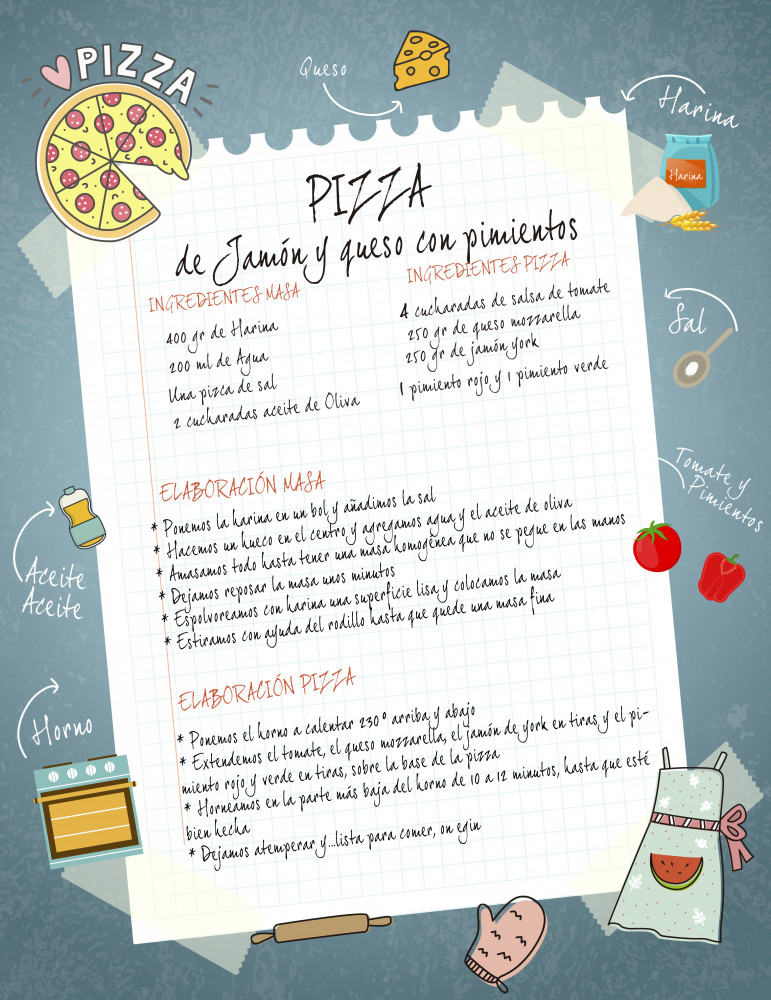 PIZZA
Queso
Harina
Harina
PIZZA
de Jamón y queso con pimientos
INGREDIENTES MASA
400 gr de Harina
200 ml de Agua
Una pizca de sal
2 cucharadas aceite de Oliva
INGREDIENTES PIZZA
4 cucharadas de salsa de tomate
250 gr de queso mozzarella
250 gr de jamón york
1 pimiento rojo y 1 pimiento verde
Sal
Tomate y
Pimientos
ELABORACIÓN MASA
* Ponemos la harina en un bol y añadimos la sal
* Hacemos un hueco en el centro y agregamos agua y el aceite de oliva
* Amasamos todo hasta tener una masa homogénea que no se pegue en las manos
* Dejamos reposar la masa unos minutos
* Espolvoreamos con harina una superficie lisa y colocamos la masa
* Estiramos con ayuda del rodillo hasta que quede una masa fina
Aceite
Aceite
ELABORACIÓN PIZZA
* Ponemos el horno a calentar 230º arriba y abajo
* Extendemos el tomate, el queso mozzarella, el jamón de york en tiras y el pi-
miento rojo y verde en tiras, sobre la base de la pizza
* Horneamos en la parte más baja del horno de 10 a 12 minutos, hasta que esté
bien hecha
* Dejamos atemperar y...lista para comer, on egin
Horno